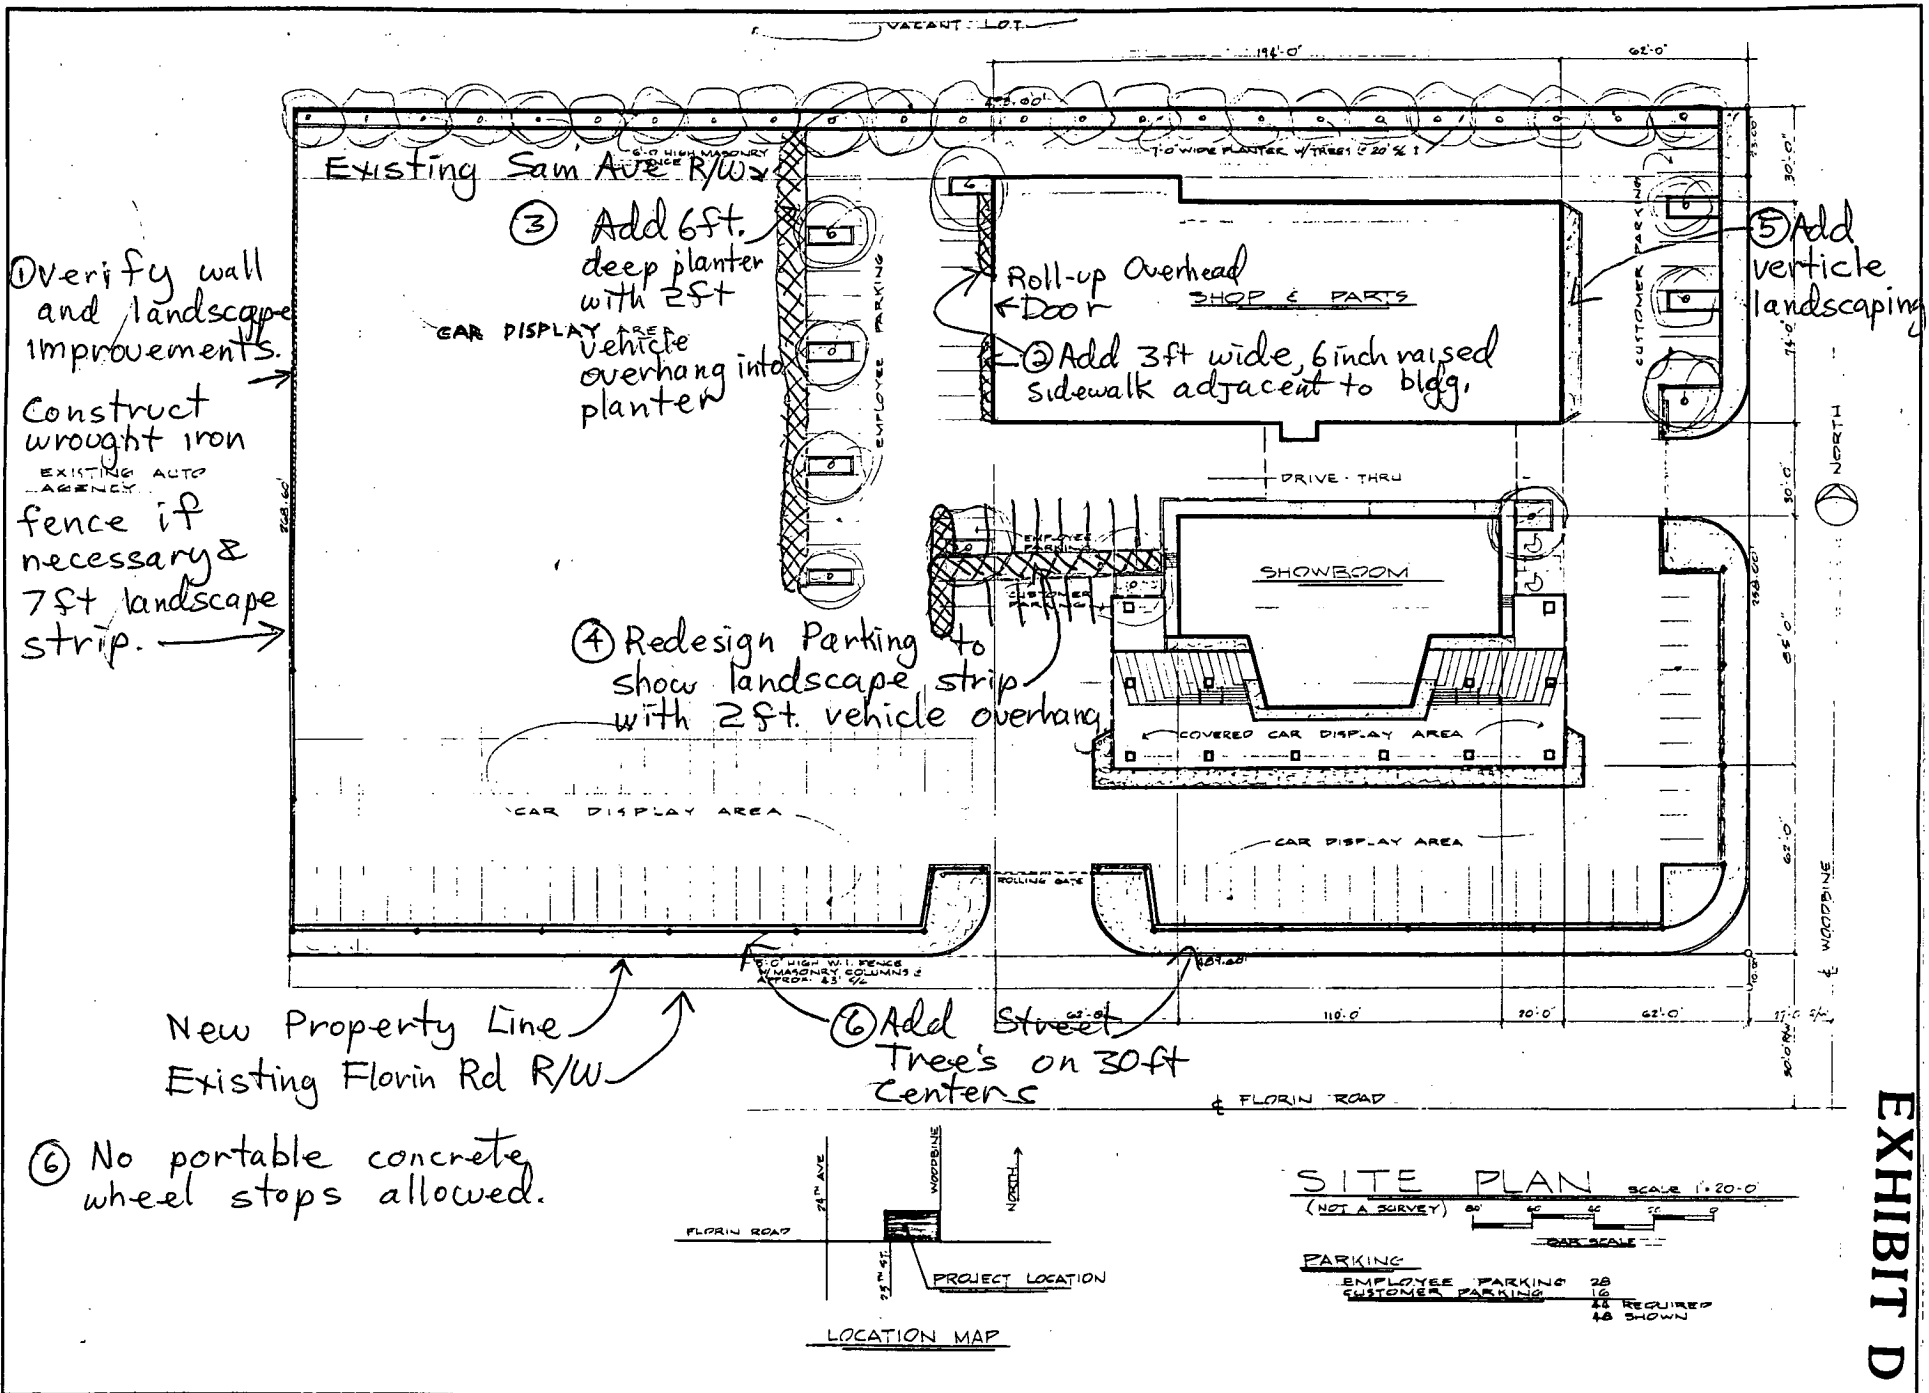 VACANT LOT
194'-0"
62'-0"
6'-0 HIGH MASONRY
FENCE
7'-0 WIDE PLANTER W/TREES
Existing Sam Ave R/W
30'-0"
③ Add 6ft.
deep planter
with 2ft
vehicle
overhang into
planter
CAR DISPLAY AREA
EMPLOYEE PARKING
Roll-up Overhead
Door
SHOP & PARTS
② Add 3ft wide, 6 inch raised
sidewalk adjacent to bldg.
CUSTOMER PARKING
⑤ Add
verticle
landscaping
74'-0"
① Verify wall
and landscape
improvements.
Construct
wrought iron
EXISTING AUTO
AGENCY
fence if
necessary &
7ft landscape
strip.
DRIVE-THRU
30'-0"
NORTH
EMPLOYEE
PARKING
SHOWROOM
④ Redesign Parking to
show landscape strip
with 2ft. vehicle overhang
85'-0"
COVERED CAR DISPLAY AREA
CAR DISPLAY AREA
CAR DISPLAY AREA
62'-0"
ROLLING GATE
℄ WOODBINE
HIGH W.I. FENCE
W/MASONRY COLUMNS
APPROX. 43' C/C
New Property Line
Existing Florin Rd R/W
⑥ Add Street
Tree's on 30ft
Centers
62'-0"
110'-0"
20'-0"
62'-0"
℄ FLORIN ROAD
⑥ No portable concrete
wheel stops allowed.
24TH AVE
WOODBINE
NORTH
FLORIN ROAD
25TH ST.
PROJECT LOCATION
LOCATION MAP
SITE PLAN SCALE 1"=20'-0"
(NOT A SURVEY)
80 60 40 20 0
BAR SCALE
PARKING
EMPLOYEE PARKING 28
CUSTOMER PARKING 16
44 REQUIRED
48 SHOWN
EXHIBIT D